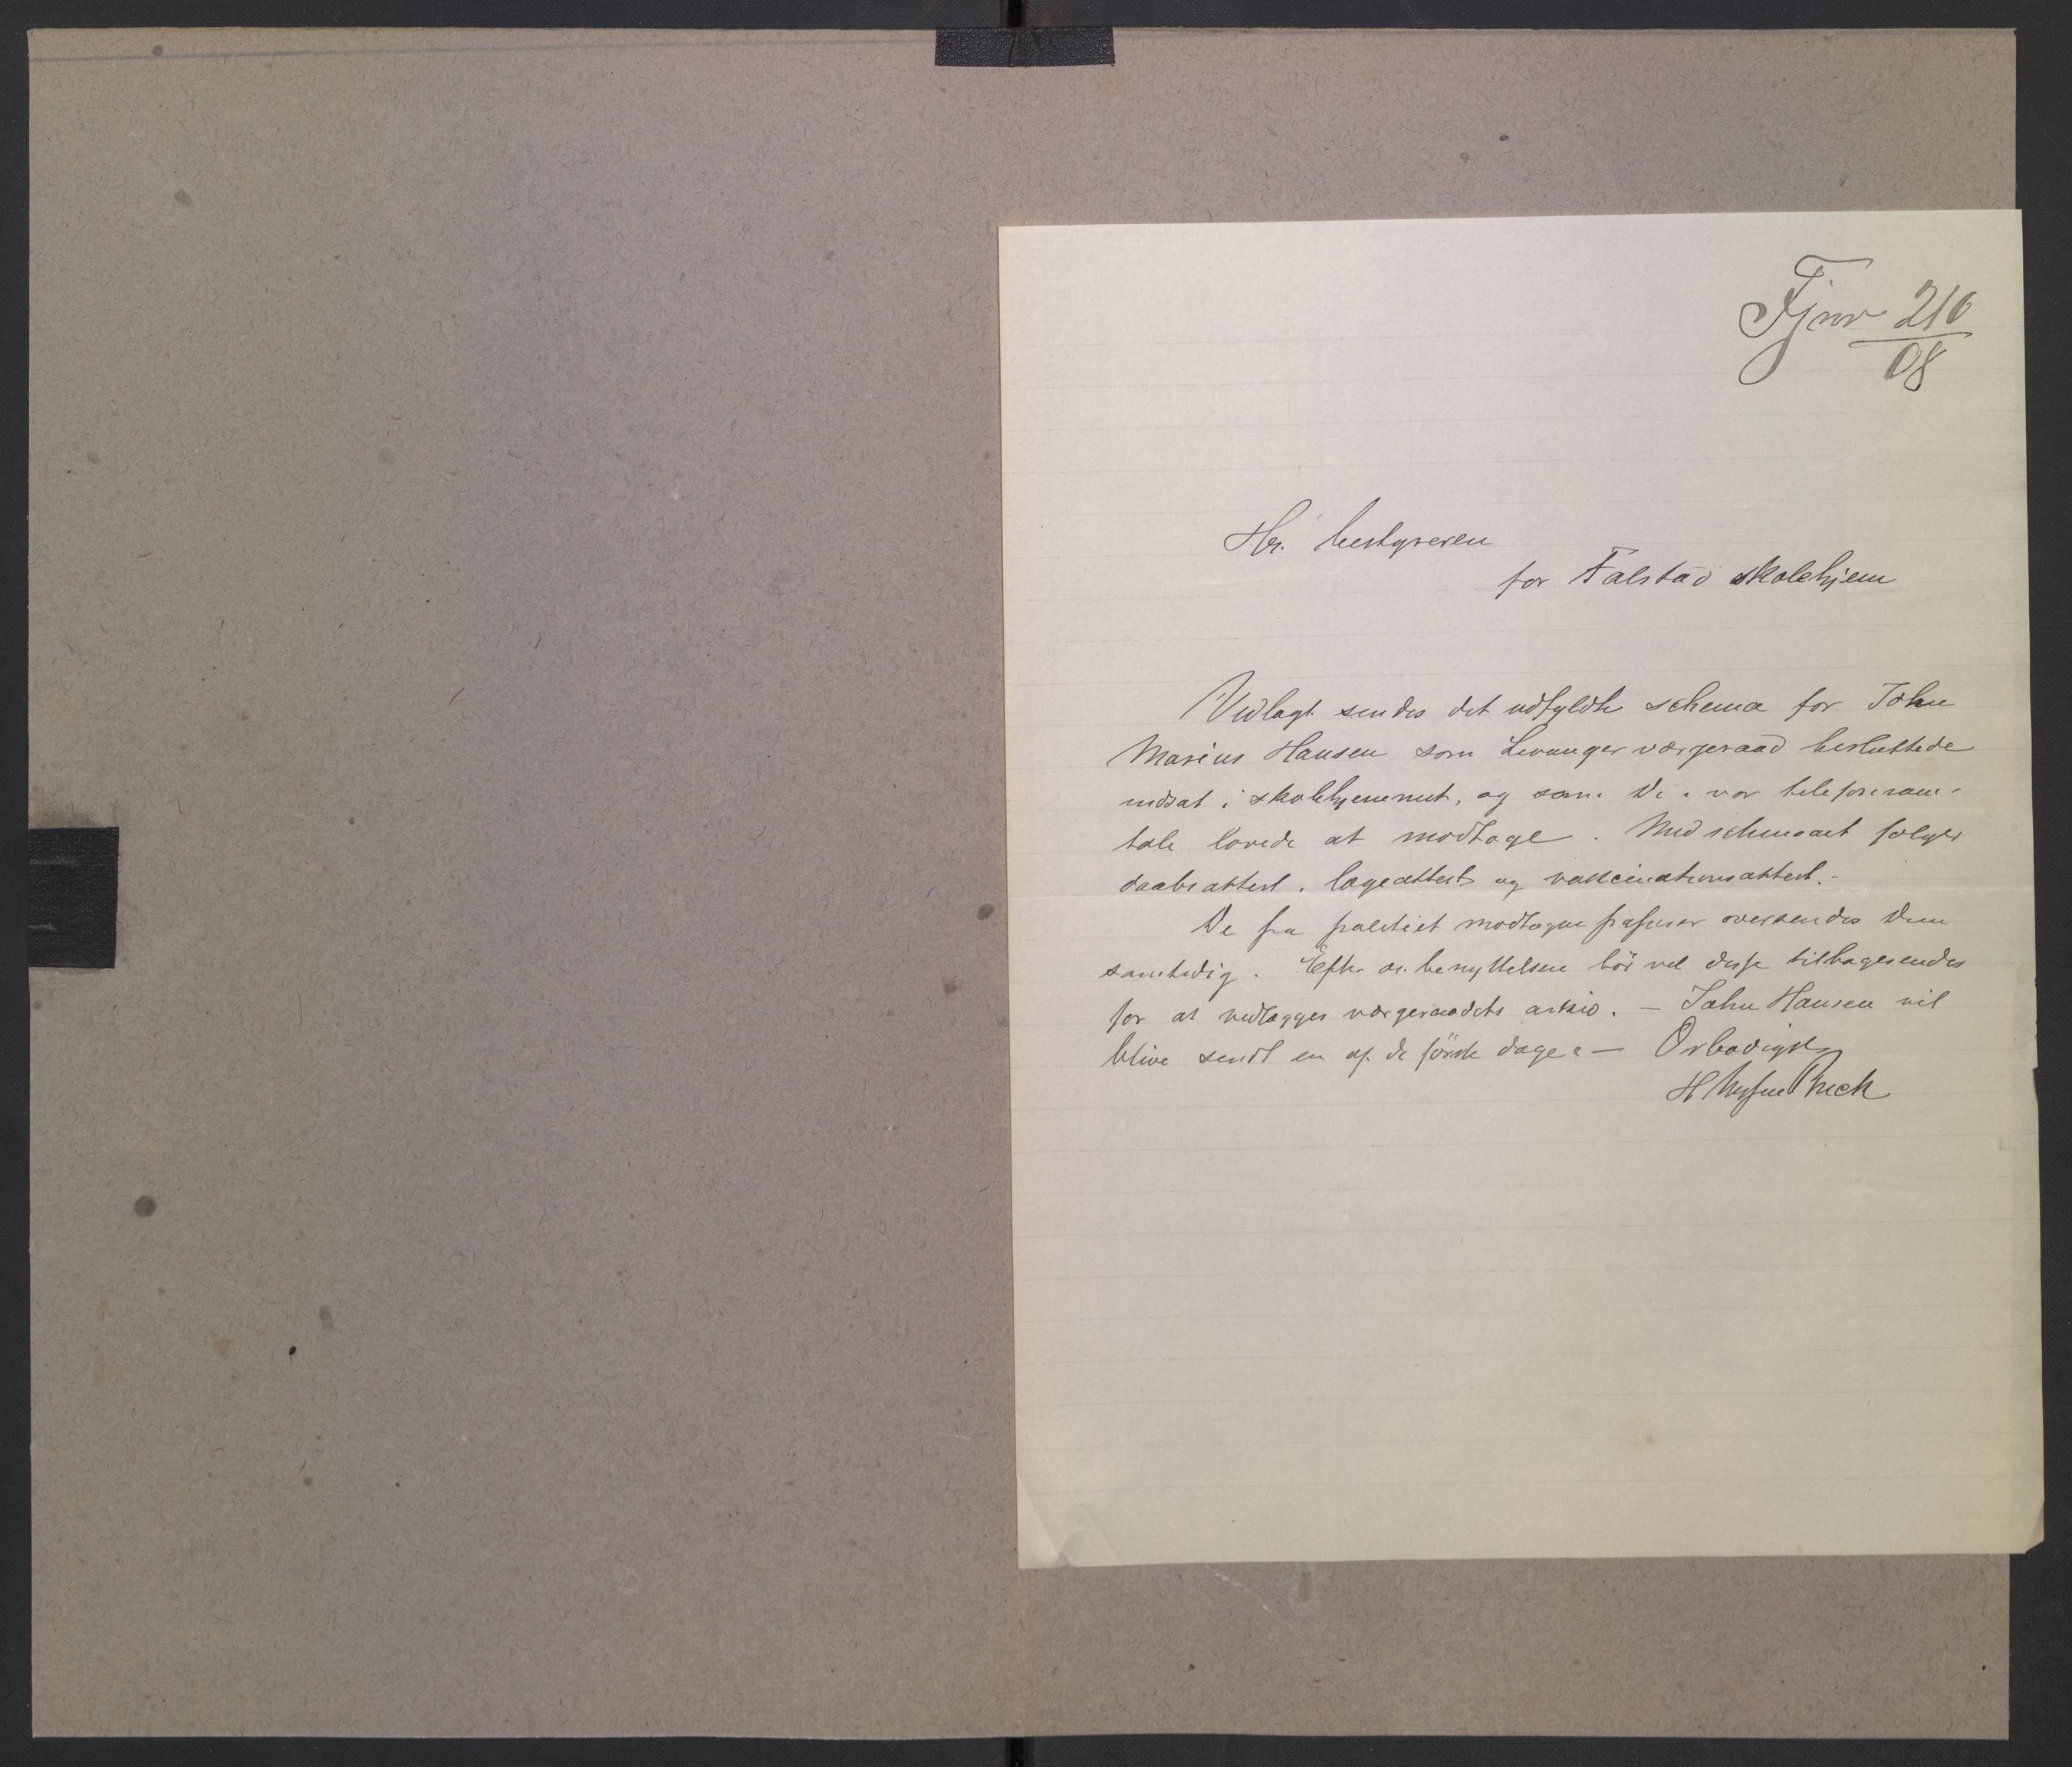 Fjnr 210
08
Hr. bestyreren
for Falstad skolehjem
Vedlagt sendes det udfyldte schema for John
Marius Hansen som Levanger værgeraad besluttede
indsat i skolehjemmet, og som De i vor telefonsam-
tale lovede at modtage. Med schemaet følger
daabsattest, lægeattest og vakcinationsattest.-
De fra politiet modtagne papirer oversendes Dem
samtidig. Efter benyttelsen bör vel disse tilbagesendes
for at vedlægges værgeraadets arkiv. — John Hansen vil
blive sendt en af de förste dage. — Ærbødigst
H